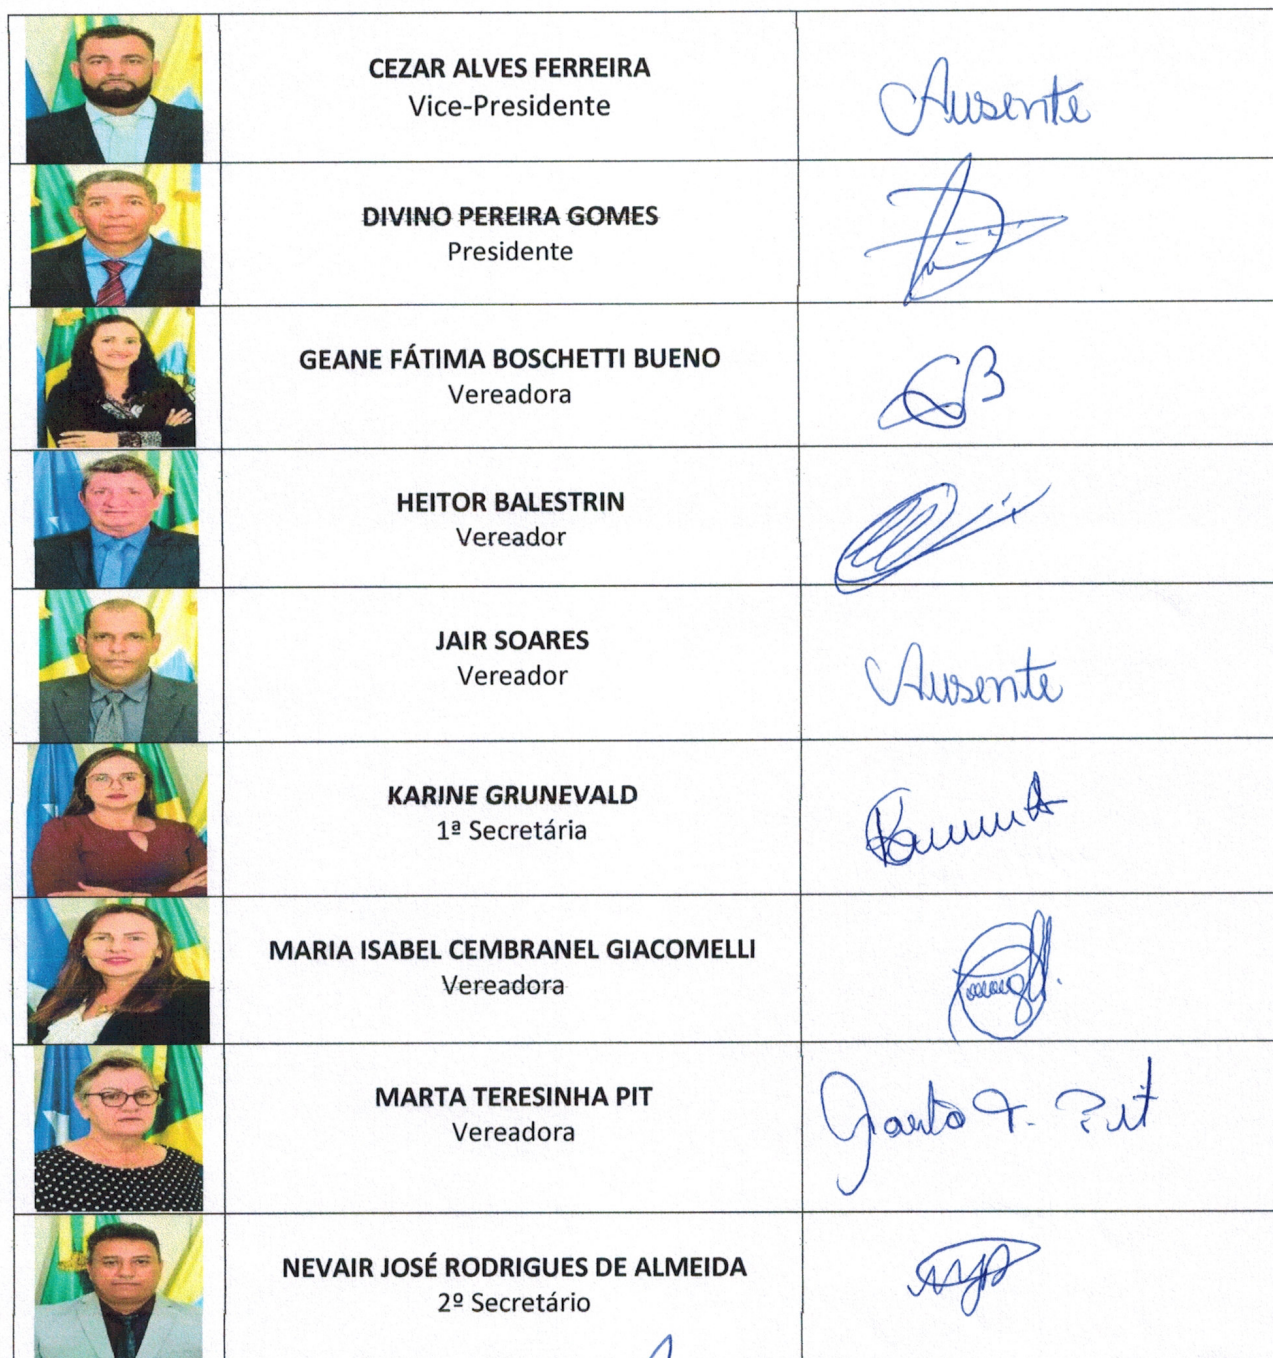 CEZAR ALVES FERREIRA
Vice-Presidente
Ausente
DIVINO PEREIRA GOMES
Presidente
GEANE FÁTIMA BOSCHETTI BUENO
Vereadora
GB
HEITOR BALESTRIN
Vereador
JAIR SOARES
Vereador
Ausente
KARINE GRUNEVALD
1ª Secretária
MARIA ISABEL CEMBRANEL GIACOMELLI
Vereadora
MARTA TERESINHA PIT
Vereadora
Marta T. Pit
NEVAIR JOSÉ RODRIGUES DE ALMEIDA
2º Secretário